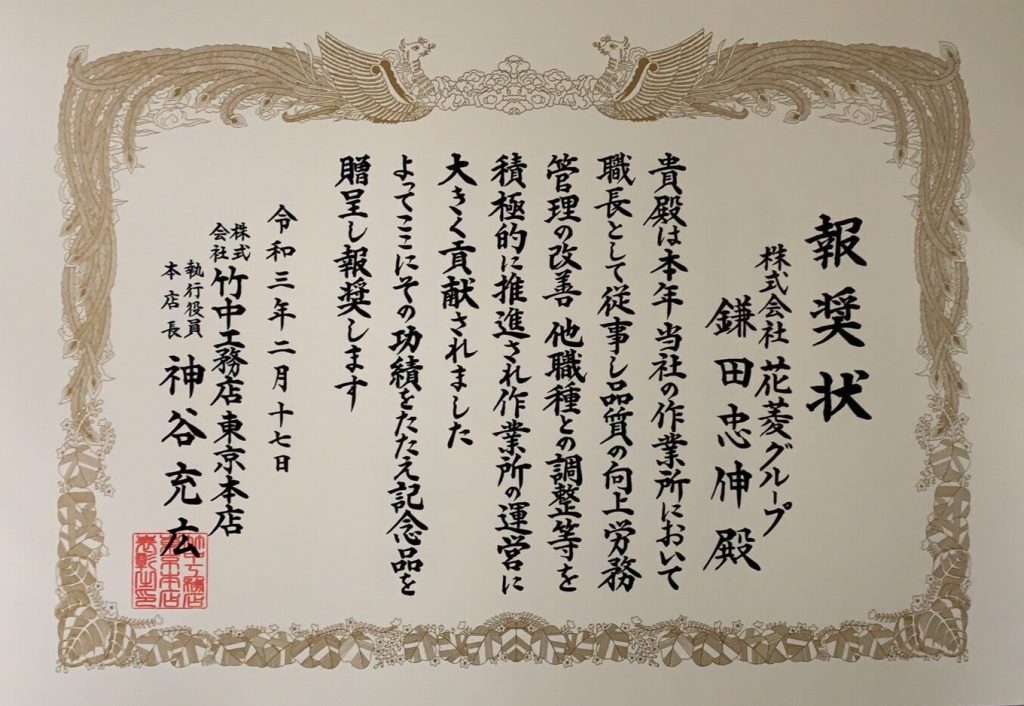 報奨状
株式会社 花菱グループ
鎌田忠伸殿
貴殿は本年当社の作業所において
職長として従事し品質の向上労務
管理の改善 他職種との調整等を
積極的に推進され作業所の運営に
大きく貢献されました
よってここにその功績をたたえ記念品を
贈呈し報奨します
令和三年二月十七日
株式会社 竹中工務店東京本店
執行役員
本店長 神谷充広
竹中工務店
東京本店
表彰之印